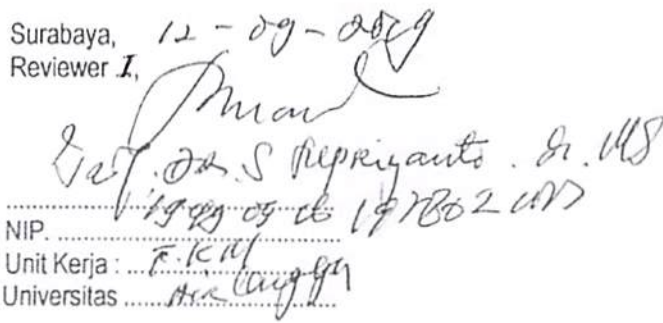 Surabaya, 12 - 09 - 2019
Reviewer I,
Prof. DR. S Supriyanto. dr. MS
NIP.
Unit Kerja : F.KM
Universitas Airlangga